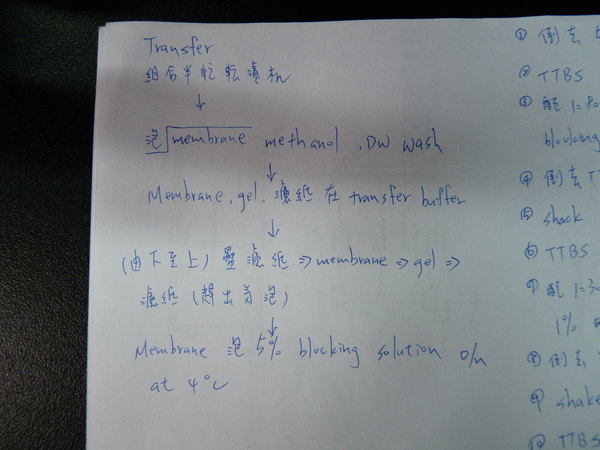 Transfer
組合半乾轉漬機
↓
泡 membrane methanol . DW wash
↓
Membrane, gel. 濾紙 在 transfer buffer
↓
(由下至上) 疊 濾紙 ⇒ membrane ⇒ gel ⇒
濾紙 (趕出氣泡)
↓
Membrane 泡 5% blocking solution o/n
at 4°C
① 倒去
② TTBS
③ 配 1=80
blocking
④ 倒去 T
⑤ shack
⑥ TTBS
⑦ 配 1=30
1%
⑧ 倒去
⑨ shake
⑩ TTBS